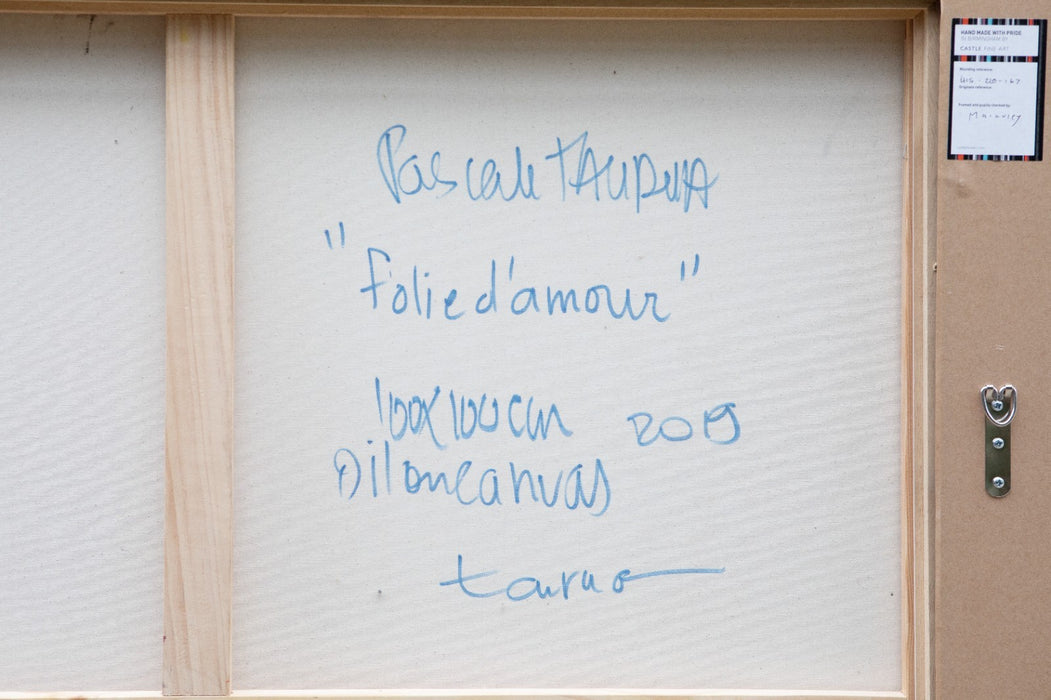 Pascale TAURUA
"folie d'amour"
100x100cm 2019
Oil on canvas
taurua
HAND MADE WITH PRIDE
IN BIRMINGHAM BY
CASTLE FINE ART
Moulding reference:
Originals reference:
Framed and quality checked by: